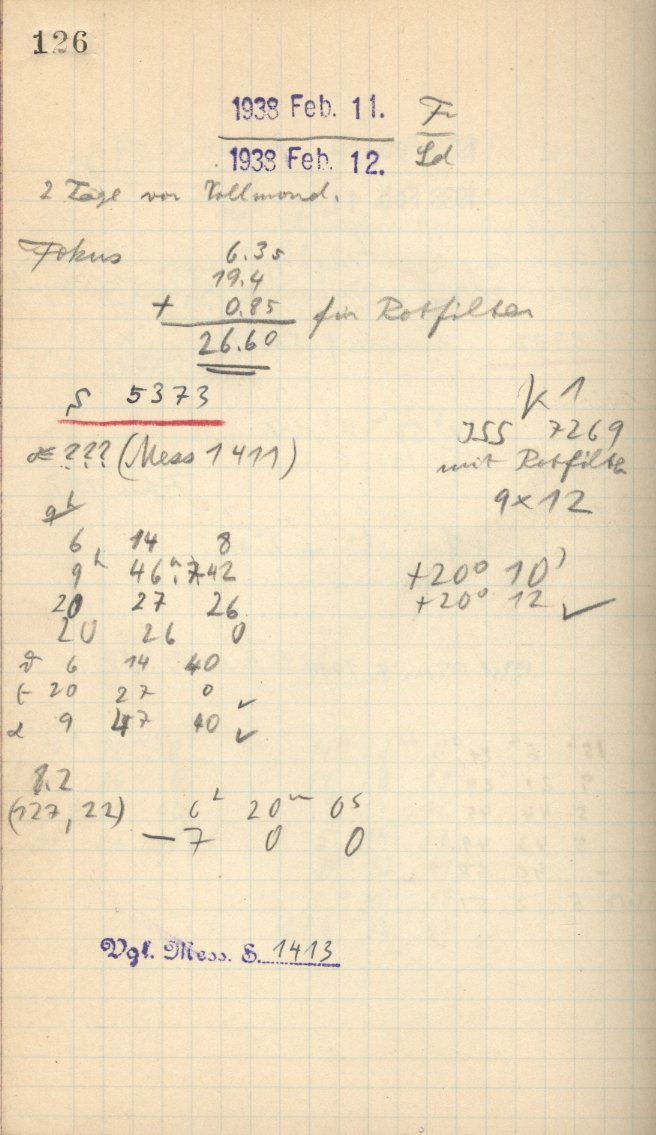 126
1938 Feb. 11. Fr
1938 Feb. 12. Sd
2 Tage vor Vollmond.
Fokus 6.35
19.4
+ 0.85 für Rotfilter
26.60
S 5373
K 1
α ??? (Mess 1411)
ISS 7269
mit Rotfilter
9 x 12
9h
6 14 8
9h 46m.742
+20° 10'
20 27 26
+20° 12 ✓
20 26 0
6 14 40
t 20 27 0 ✓
α 9 47 40 ✓
8.2
(127, 22) 6h 20m 0s
-7 0 0
Vgl. Mess. S. 1413